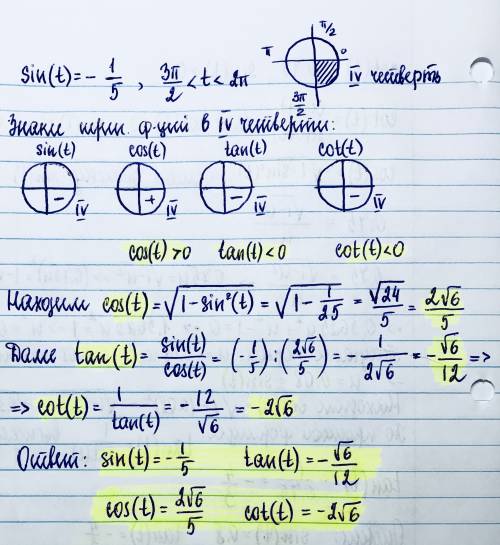 π/2
π 0
sin(t) = - 1/5 , 3π/2 < t < 2π IV четверть
3π/2
Знаки триг. ф-ций в IV четверти:
sin(t) cos(t) tan(t) cot(t)
- IV + IV - IV - IV
cos(t) > 0 tan(t) < 0 cot(t) < 0
Находим cos(t) = √(1 - sin²(t)) = √(1 - 1/25) = √24/5 = 2√6/5
Далее tan(t) = sin(t)/cos(t) = (-1/5) : (2√6/5) = - 1/2√6 = - √6/12 =>
=> cot(t) = 1/tan(t) = - 12/√6 = - 2√6
Ответ: sin(t) = - 1/5 tan(t) = - √6/12
cos(t) = 2√6/5 cot(t) = - 2√6